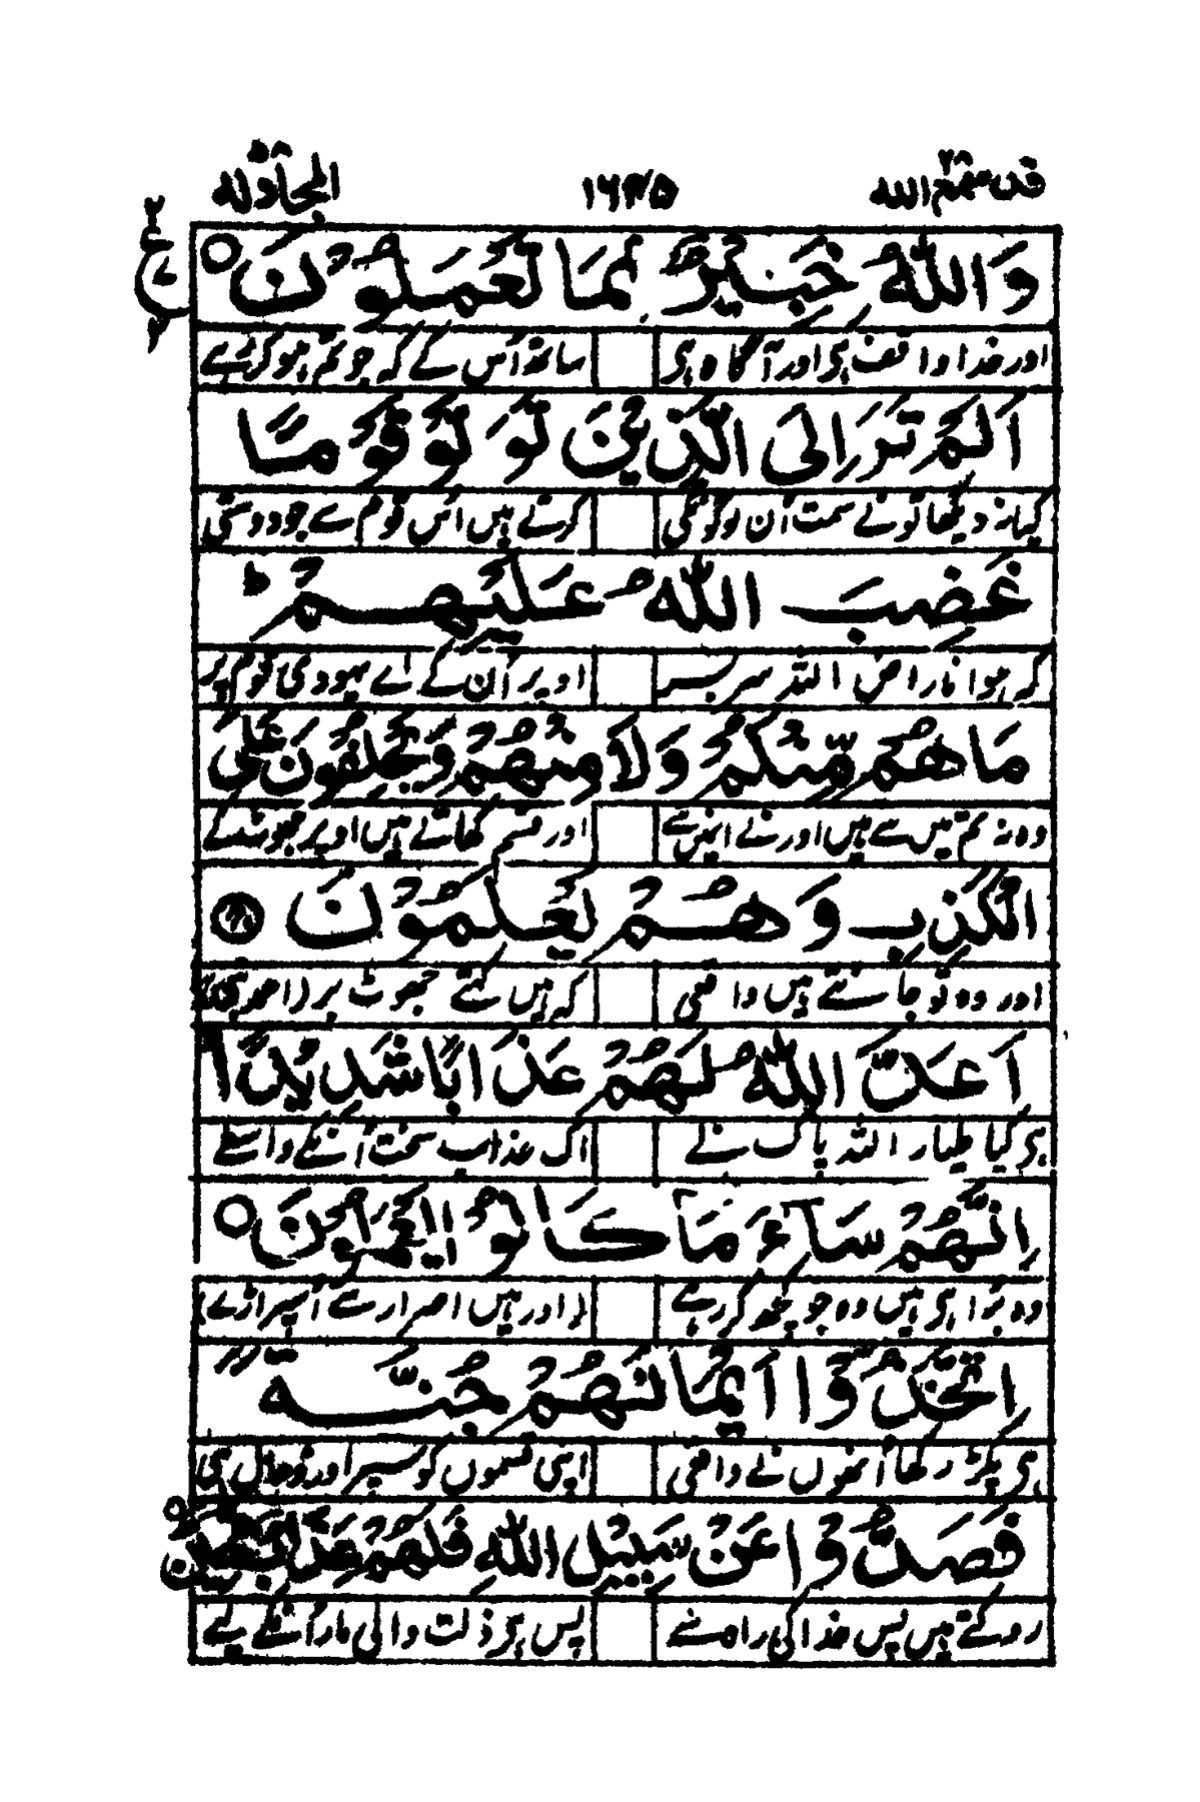 قد سمع الله ٢٨ ١٦٣٥ المجادلة ٥٨
وَاللّٰهُ خَبِيْرٌۢ بِمَا تَعْمَلُوْنَ ○
اور خدا واقف ہی اور آگاہ ہی ساتھ اُس کے کہ جو تم ہو کرتے
اَلَمْ تَرَ اِلَى الَّذِيْنَ تَوَلَّوْا قَوْمًا
کیا نہ دیکھا تو نے سمت اُن لوگوں کی کرتے ہیں اُس قوم سے جو دوستی
غَضِبَ اللّٰهُ عَلَيْهِمْ ط
کہ ہوا ناراض اللہ سر بسر اوپر اُن کے اے یہود کی قوم پر
مَا هُمْ مِّنْكُمْ وَلَا مِنْهُمْ وَيَحْلِفُوْنَ عَلَى
وہ نہ تم میں سے ہیں اور نے انمیں سے اور قسم کھاتے ہیں اوپر جھوٹھ کے
الْكَذِبِ وَهُمْ يَعْلَمُوْنَ
اور وہ تو جانتے ہیں واقعی کہ ہیں کہتے جھوٹ پر
اَعَدَّ اللّٰهُ لَهُمْ عَذَابًا شَدِيْدًا
ہی کیا طیار اللہ پاک نے اک عذاب سخت اُنکے واسطے
اِنَّهُمْ سَآءَ مَا كَانُوْا يَعْمَلُوْنَ ○
وہ بُرا ہی ہیں وہ جو کچھ کر رہے (اور ہیں اصرار سے اُسپر اڑے)
اِتَّخَذُوْٓا اَيْمَانَهُمْ جُنَّةً
ہی پکڑ رکھا اُنھوں نے واقعی اپنی قسموں کو سپر اور ڈھال ہی
فَصَدُّوْا عَنْ سَبِيْلِ اللّٰهِ فَلَهُمْ عَذَابٌ مُّهِيْنٌ ○
روکتے ہیں پس خدا کی راہ سے پس ہی ذلت والی مار اُنکے لیے